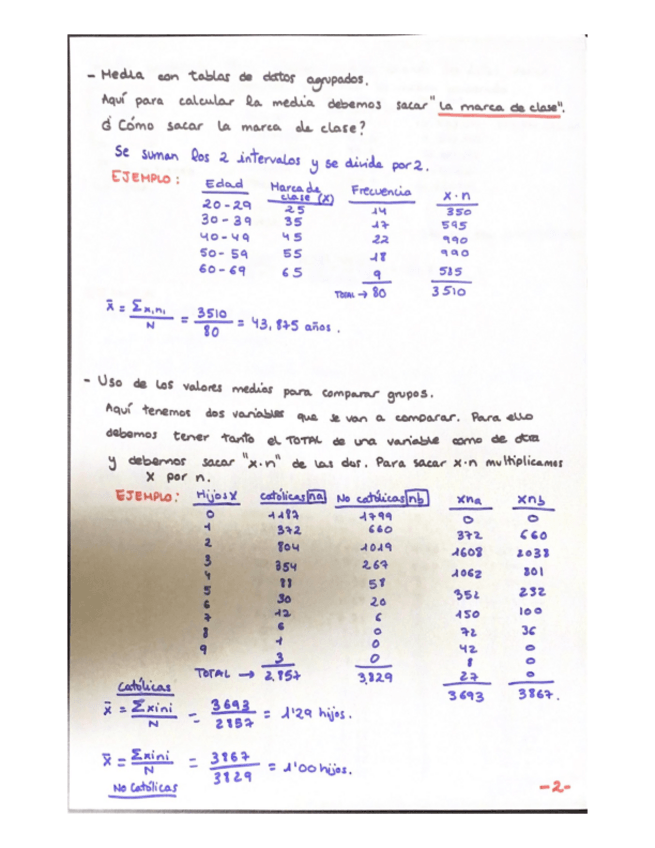 - Media con tablas de datos agrupados.
Aquí para calcular la media debemos sacar "la marca de clase".
¿Cómo sacar la marca de clase?
Se suman los 2 intervalos y se divide por 2.
EJEMPLO: Edad Marca de clase (X) Frecuencia X·n
20-29 25 14 350
30-39 35 17 595
40-49 45 22 990
50-59 55 18 990
60-69 65 9 585
TOTAL → 80 3510
x̄ = Σxini / N = 3510 / 80 = 43,875 años.
- Uso de los valores medias para comparar grupos.
Aquí tenemos dos variables que se van a comparar. Para ello
debemos tener tanto el TOTAL de una variable como de otra
y debemos sacar "x·n" de las dos. Para sacar x·n multiplicamos
X por n.
EJEMPLO: Hijos X católicas na No católicas nb Xna Xnb
0 1187 1799 0 0
1 372 660 372 660
2 804 1019 1608 2038
3 354 267 1062 801
4 88 58 352 232
5 30 20 150 100
6 12 6 72 36
7 6 0 42 0
8 1 0 8 0
9 3 0 27 0
TOTAL → 2,857 3,829 3693 3867.
Católicas
x̄ = Σxini / N = 3693 / 2857 = 1'29 hijos.
x̄ = Σxini / N = 3867 / 3829 = 1'00 hijos.
No Católicas
-2-